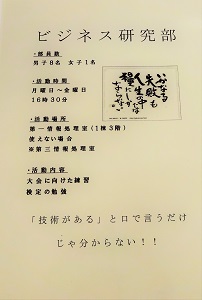 ビジネス研究部
・部員数
男子8名 女子1名
・活動時間
月曜日～金曜日
16時30分
・活動場所
第一情報処理室(1棟3階)
使えない場合
※第三情報処理室
・活動内容
大会に向けた練習
検定の勉強
いかなる
失敗も
人生の中の
糧にしか
ならない
「技術がある」と口で言うだけ
じゃ分からない！！